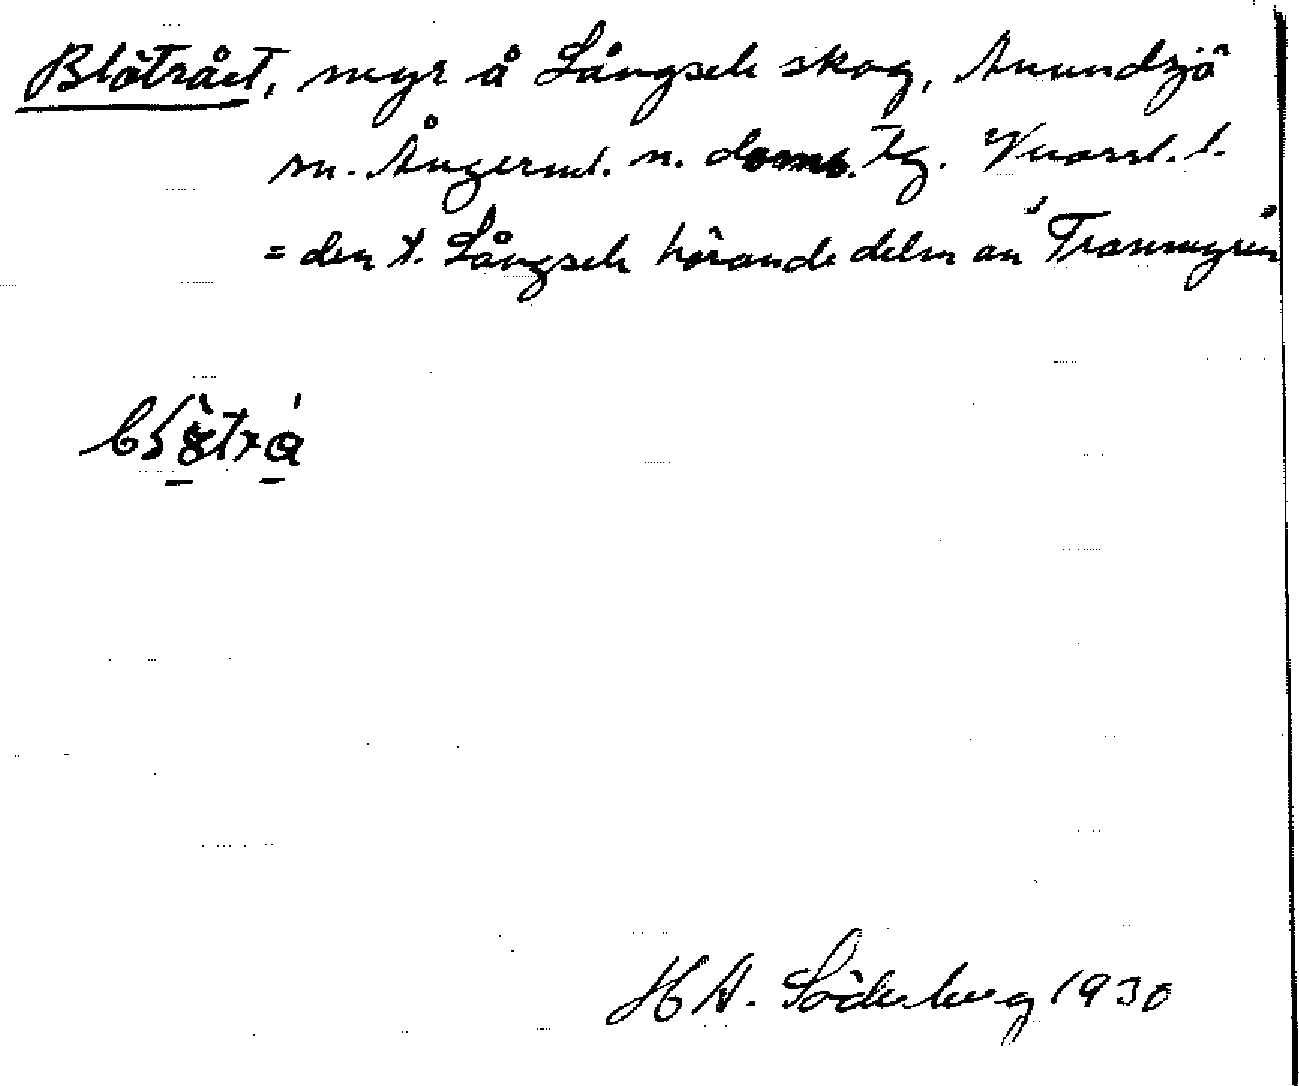 Blötrået, myr å Långsele skog, Anundsjö
sn. Ångerml. n. doms. Tg. Vnorrl. l.
= den t. Långsele hörande delen av "Tranmyren"
H A. Söderberg 1930